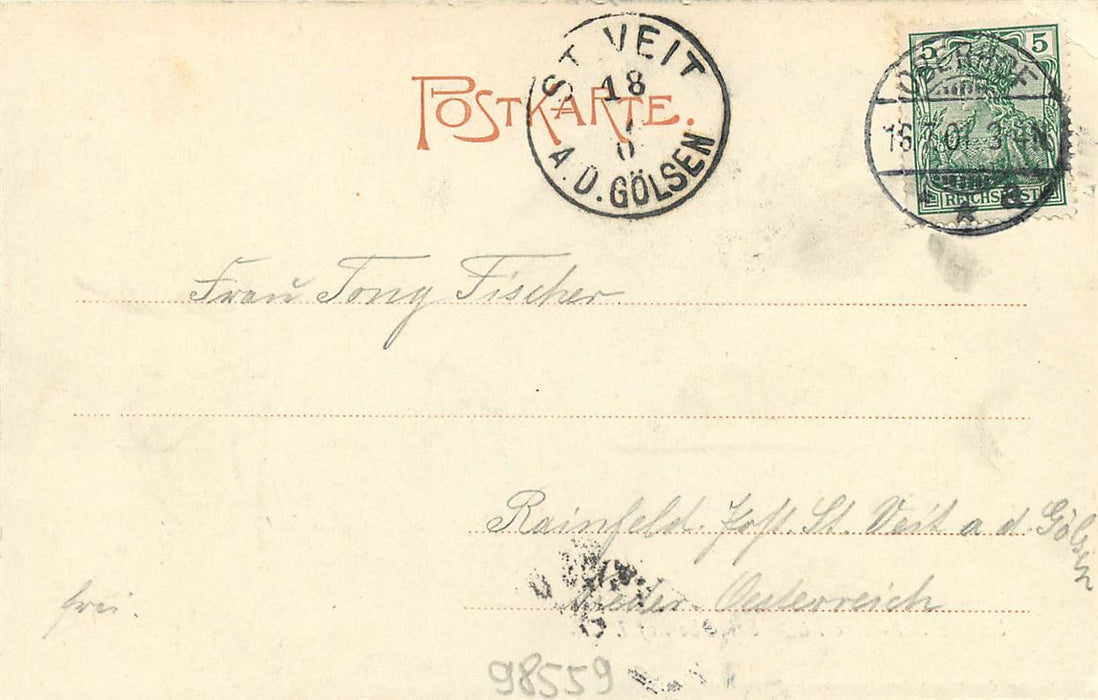 POSTKARTE.
ST. VEIT
18
A.D. GÖLSEN
5 5
OBERHOF
16.7.01. 3-4N.
* * a
REICHSPOST
Frau Tony Fischer
Rainfeld. Post. St. Veit a. d. Gölsen
Nieder-Oesterreich
frei.
98559